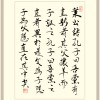 葉公語孔子曰吾黨有
直躬者其父攘羊而
子證之孔子曰吾黨之
直者異於是父為子隱
子為父隱直在其中矣